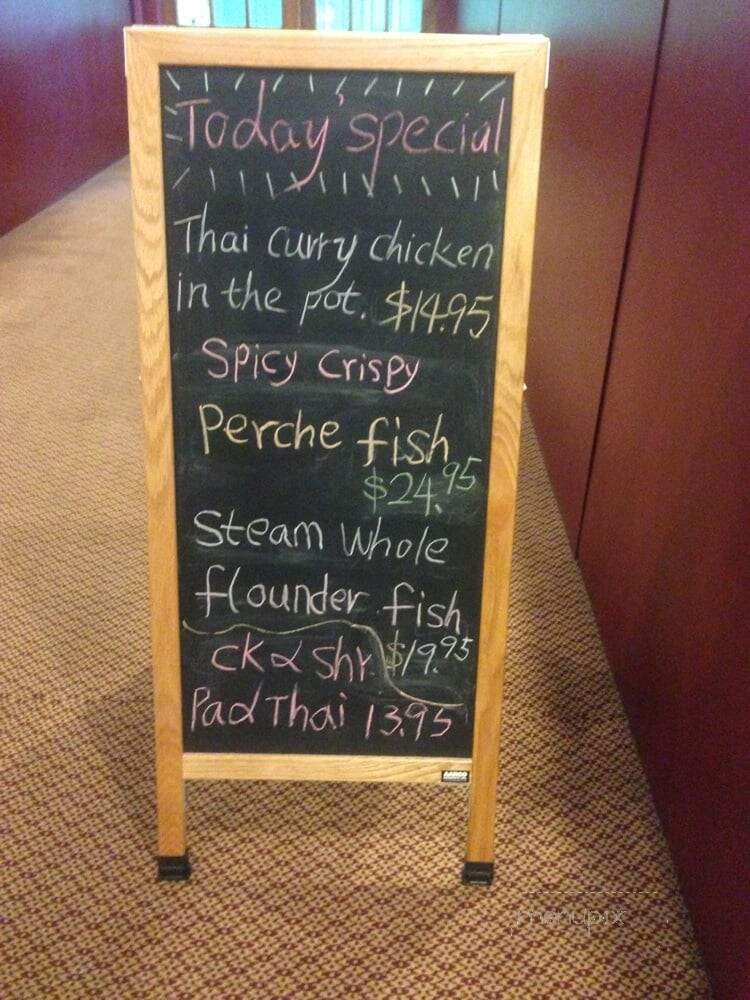 Today'special
Thai curry chicken
in the pot. $14.95
Spicy Crispy
Perche fish
$24.95
Steam Whole
flounder fish
$19.95
ck & Shr
Pad Thai 13.95
AARCO
menupix